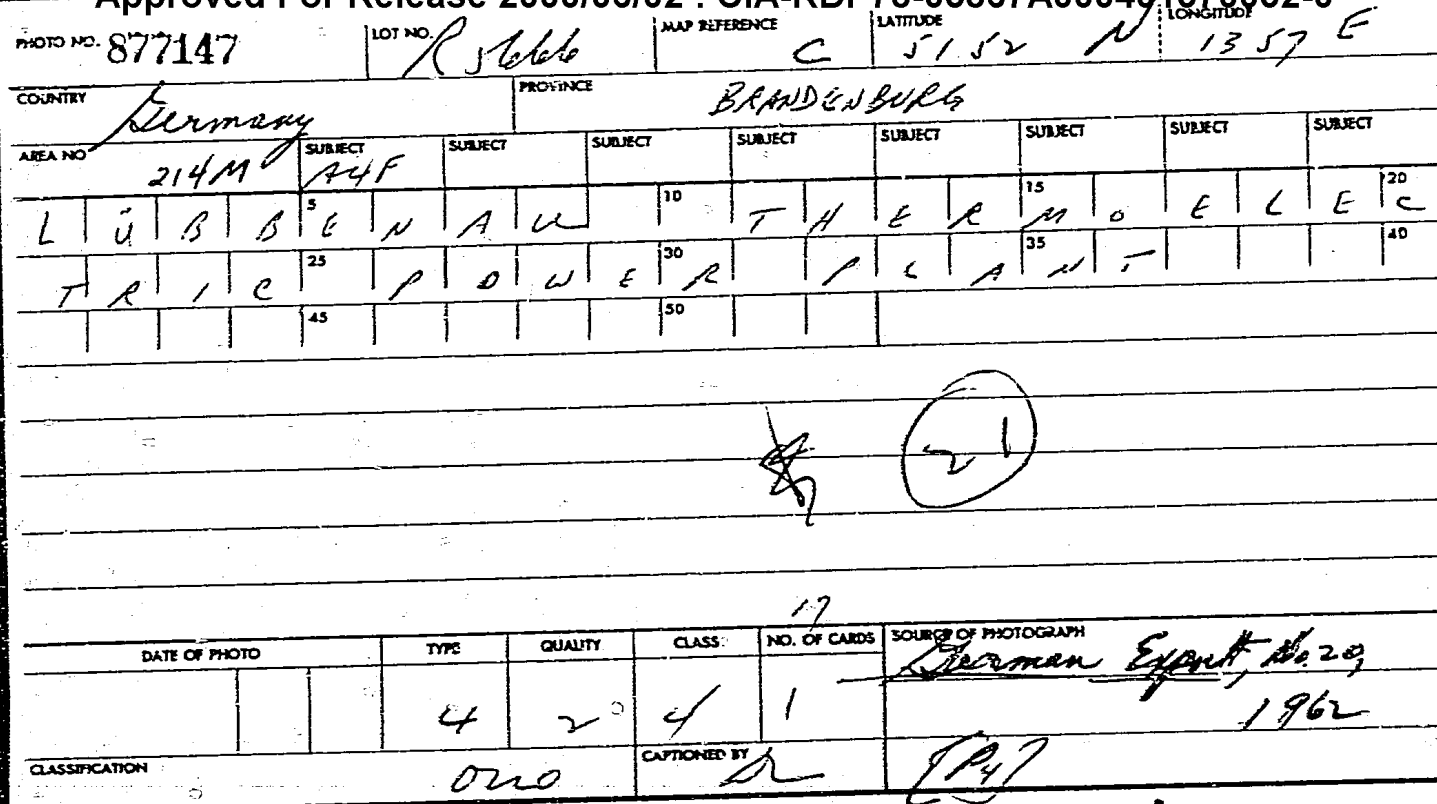 Approved For Release
PHOTO NO. 877147 LOT NO. R 5666 MAP REFERENCE C LATITUDE 51 52 N LONGITUDE 13 57 E
COUNTRY Germany PROVINCE BRANDENBURG
AREA NO 214M SUBJECT A4F SUBJECT SUBJECT SUBJECT SUBJECT SUBJECT SUBJECT SUBJECT
5 10 15 20
LÜBBENAU THERMOELEC
25 30 35 40
TRIC POWER PLANT
45 50
21
17
DATE OF PHOTO TYPE QUALITY CLASS. NO. OF CARDS SOURCE OF PHOTOGRAPH
German Export, No. 20,
4 2 4 1 1962
CLASSIFICATION OUO CAPTIONED BY [P4]